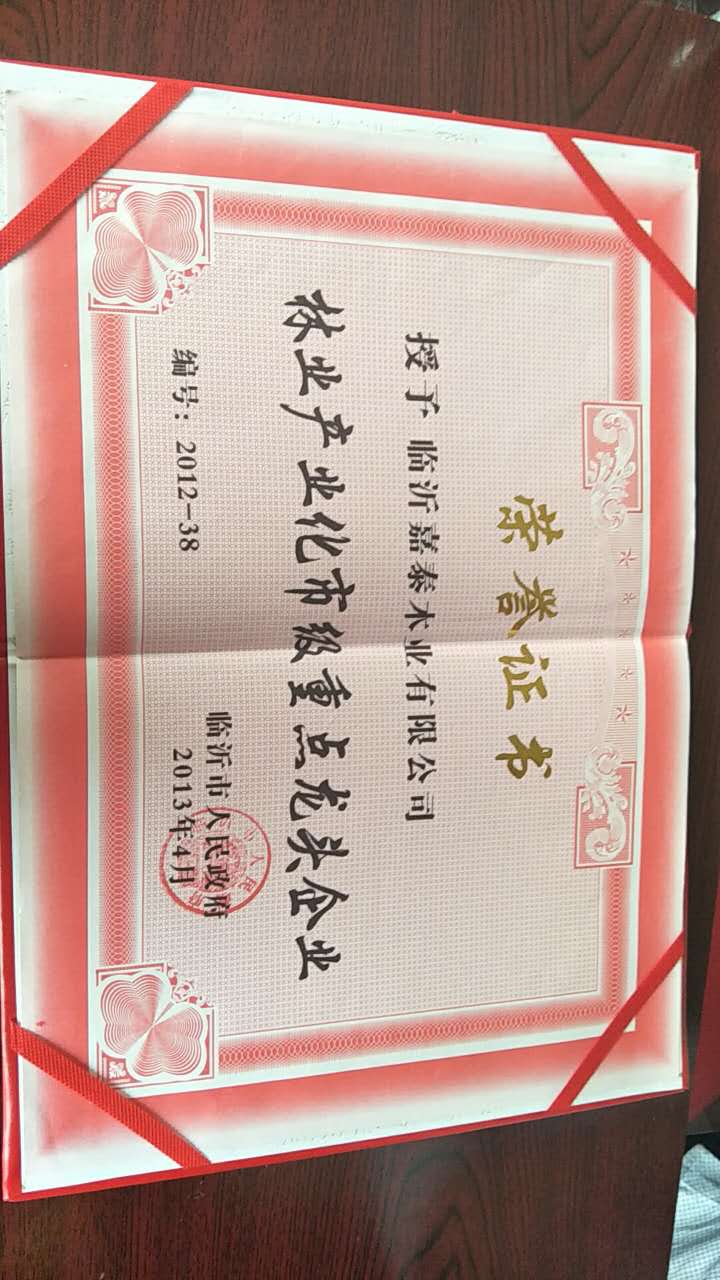 荣誉证书
授予 临沂嘉泰木业有限公司
林业产业化市级重点龙头企业
编号：2012-38
临沂市人民政府
2013年4月